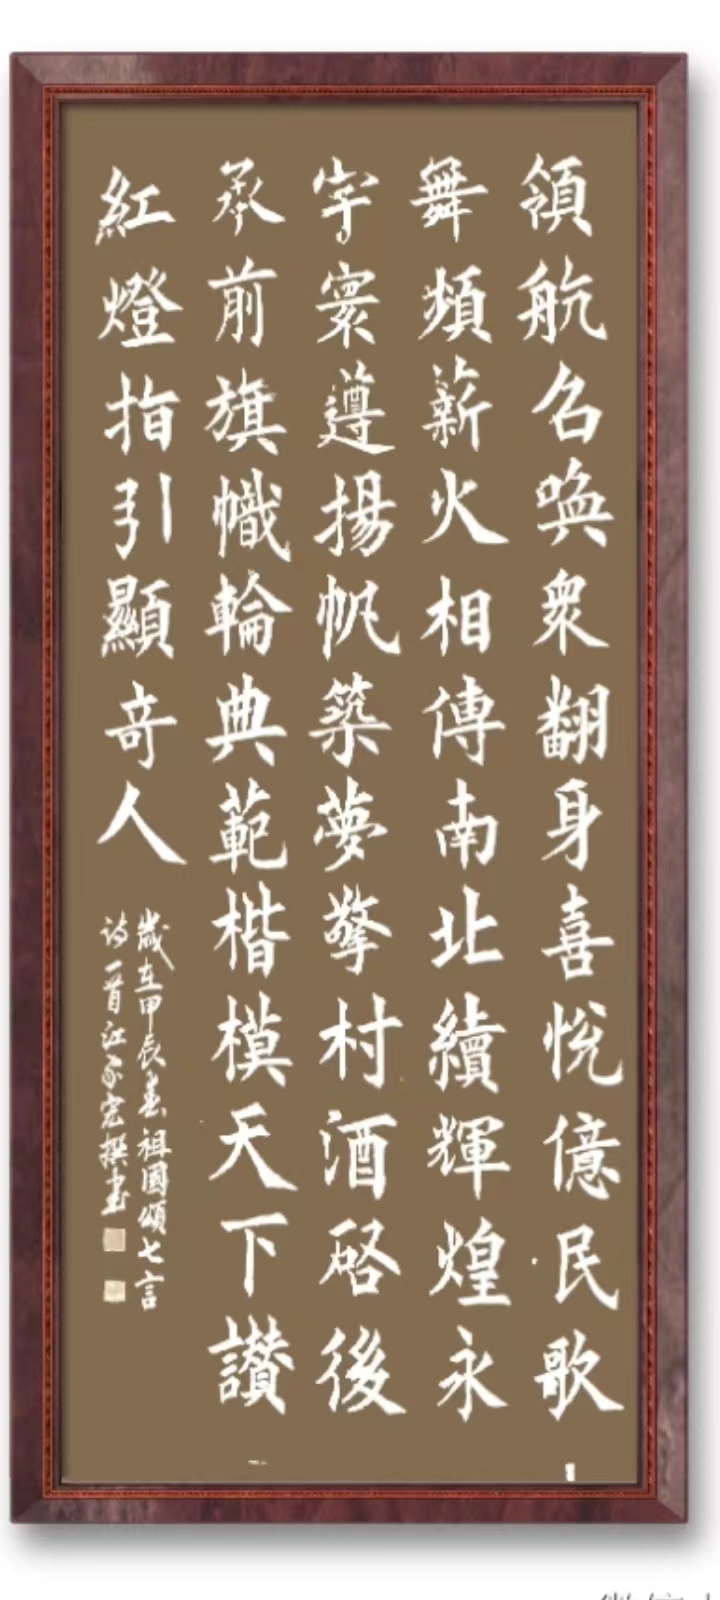 領航名喚衆翻身喜悅億民歌
舞頻薪火相傳南北續輝煌永
宇寰遵揚帆築夢擎村酒後
承前旗幟輪典範楷模天下讚
紅燈指引顯奇人
歲在甲辰春祖國頌七言
詩一首江宏撰書